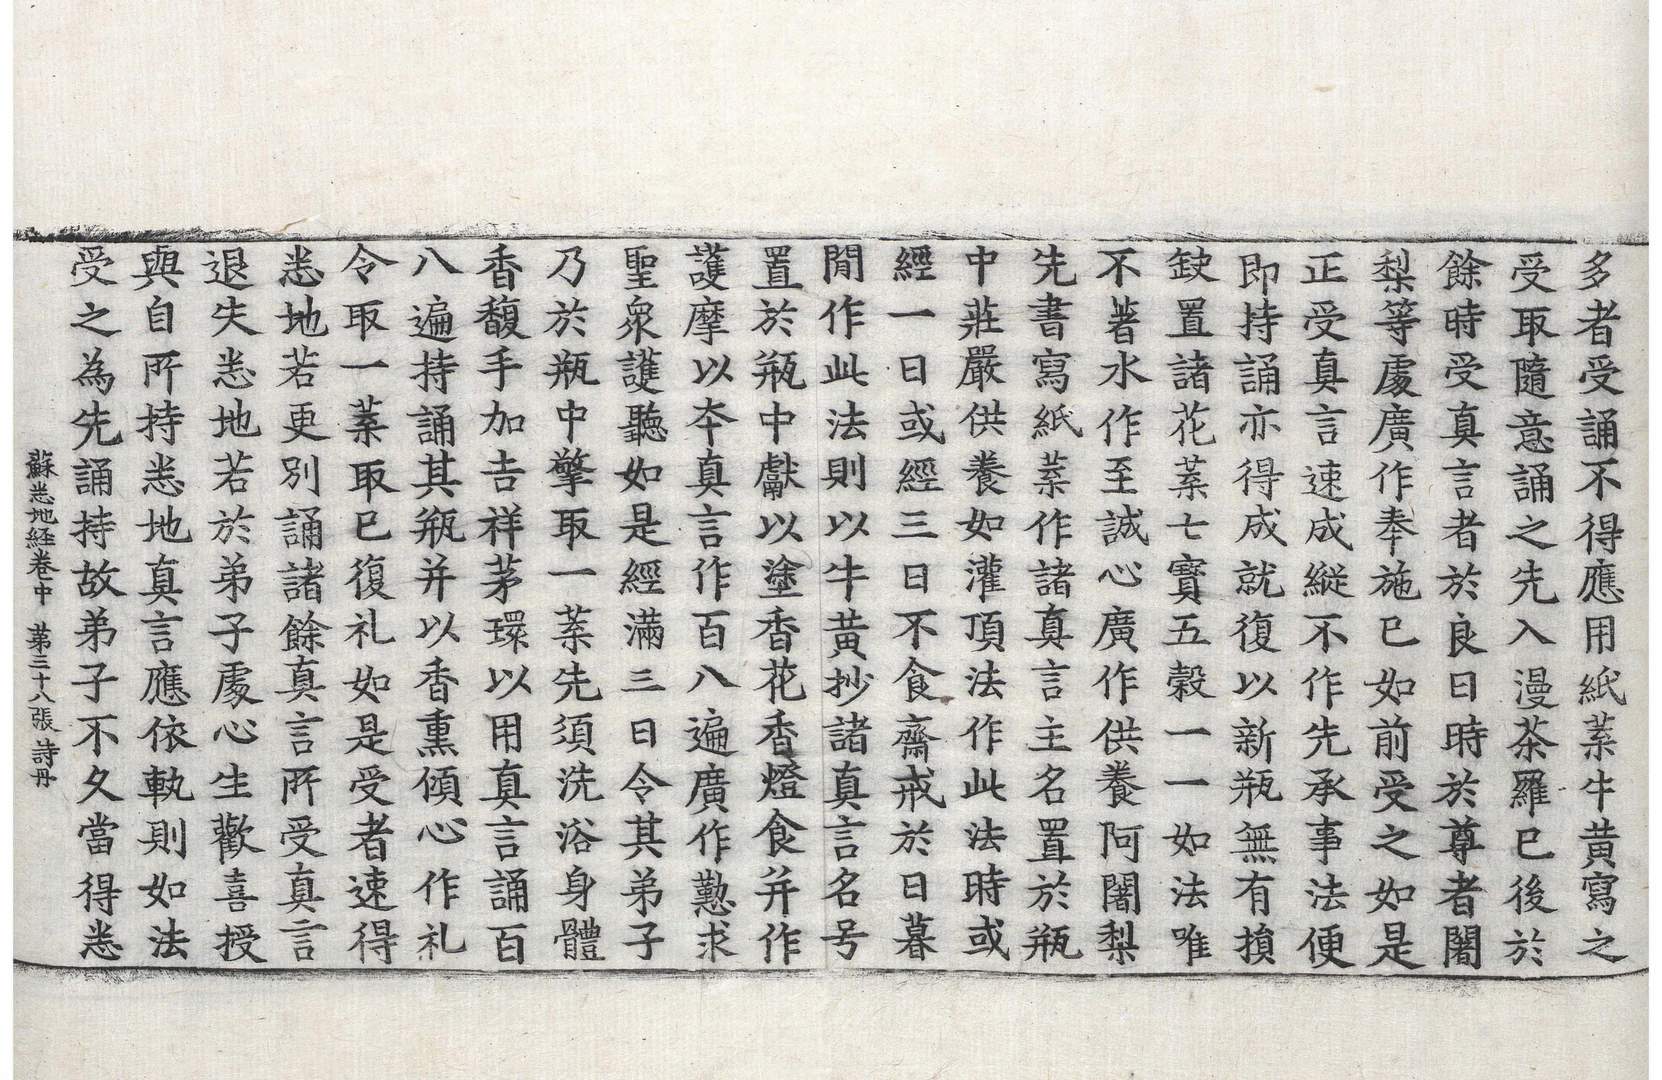 多者受誦不得應用紙葉牛黃寫之
受取隨意誦之先入漫茶羅巳後於
餘時受真言者於良日時於尊者闍
梨等處廣作奉施巳如前受之如是
正受真言速成縱不作先承事法便
即持誦亦得成就復以新瓶無有損
缺置諸花葉七寶五糓一一如法唯
不著水作至誠心廣作供養阿闍梨
先書寫紙葉作諸真言主名置於瓶
中莊嚴供養如灌頂法作此法時或
經一日或經三日不食齋戒於日暮
閒作此法則以牛黃抄諸真言名号
置於瓶中獻以塗香花香燈食并作
護摩以夲真言作百八遍廣作懃求
聖衆護聽如是經滿三日令其弟子
乃於瓶中擎取一葉先須洗浴身體
香馥手加吉祥茅環以用真言誦百
八遍持誦其瓶并以香熏傾心作礼
令取一葉取巳復礼如是受者速得
悉地若更別誦諸餘真言所受真言
退失悉地若於弟子處心生歡喜授
與自所持悉地真言應依軌則如法
受之為先誦持故弟子不久當得悉
蘇悉地経卷中 苐三十八張 詩丹